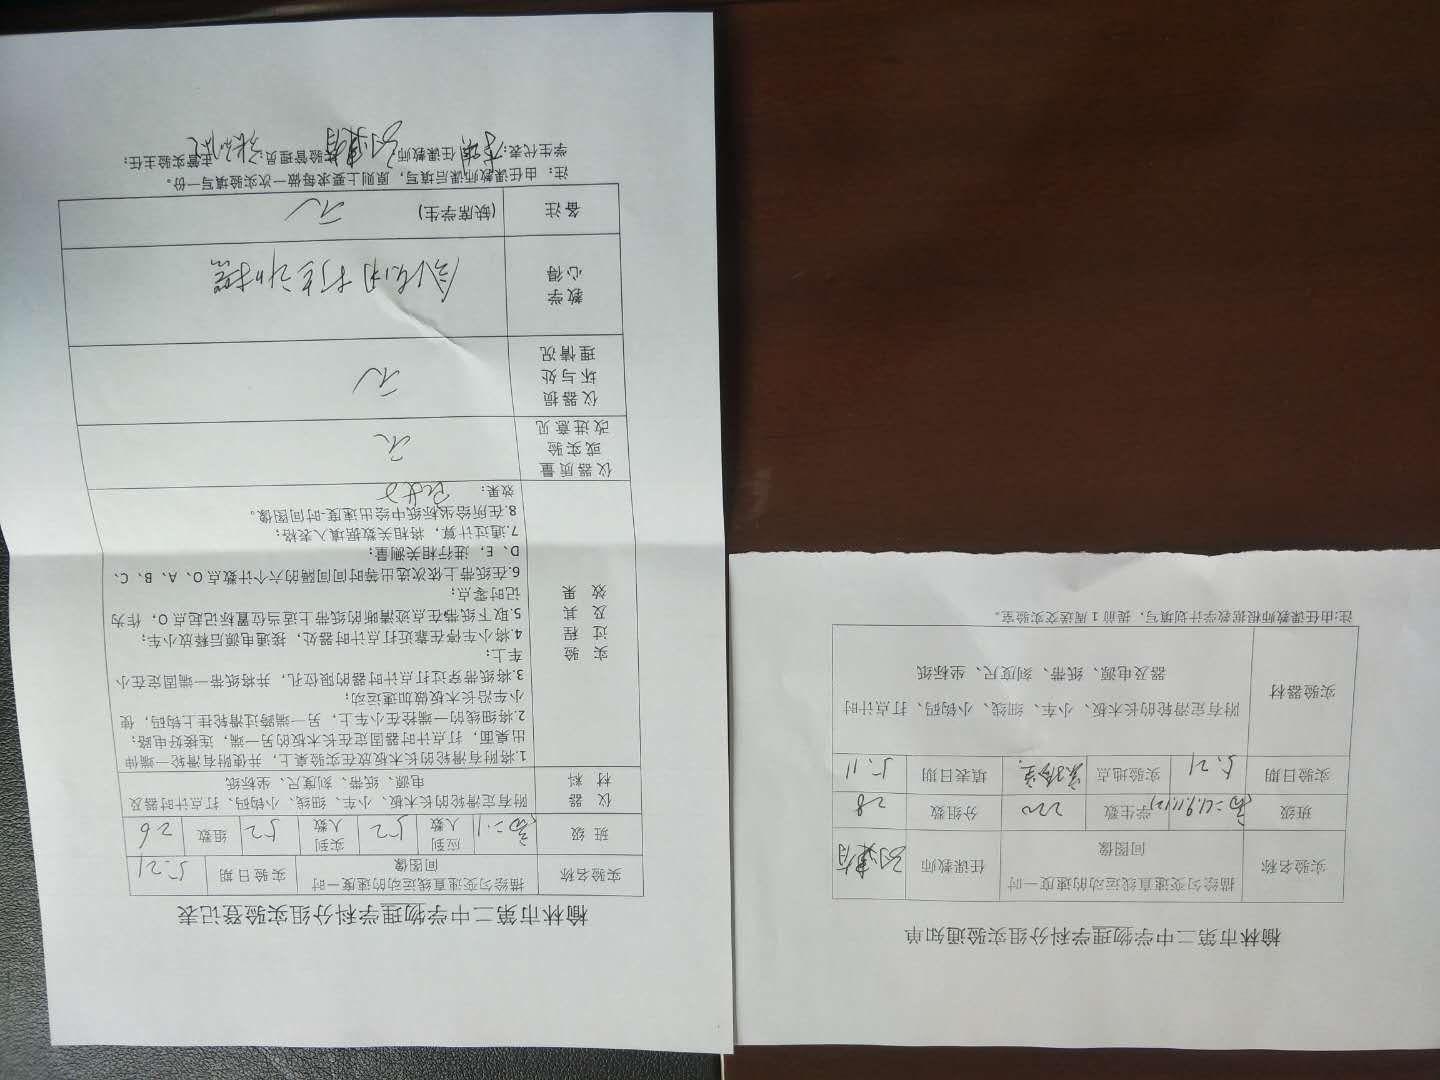 榆林市第二中学物理学科分组实验通知单
实验名称 描绘匀变速直线运动的速度一时间图像 任课教师
班级 学生数 220 分组数 28
实验日期 5.21 实验地点 实验室 填表日期 5.11
实验器材 附有定滑轮的长木板、小车、细线、小钩码、打点计时
器及电源、纸带、刻度尺、坐标纸
注:由任课教师根据教学计划填写，提前1周送交实验室。
榆林市第二中学物理学科分组实验登记表
实验名称 描绘匀变速直线运动的速度一时间图像 实验日期 5.21
班级 高二.1 应到人数 52 实到人数 52 组数 26
仪器材料 附有定滑轮的长木板、小车、细线、小钩码、打点计时器及
电源、纸带、刻度尺、坐标纸
实验过程及其效果
1.将附有滑轮的长木板放在实验桌上，并使附有滑轮一端伸
出桌面，打点计时器固定在长木板的另一端，连接好电路；
2.将细线的一端拴在小车上，另一端跨过滑轮挂上钩码，使
小车沿长木板做加速运动；
3.将纸带穿过打点计时器的限位孔，并将纸带一端固定在小
车上；
4.将小车停在靠近打点计时器处，接通电源后释放小车；
5.取下纸带在点迹清晰的纸带上适当位置标记起点O，作为
记时零点；
6.在纸带上依次选出等时间间隔的六个计数点O、A、B、C、
D、E，进行相关测量；
7.通过计算，将相关数据填入表格；
8.在所给坐标纸中绘出速度-时间图像。
效果：
仪器质量或实验改进意见 无
仪器损坏与处理情况 无
教学心得 会使用打点计时器
备注 (缺席学生) 无
注：由任课教师课后填写，原则上要求每做一次实验填写一份。
学生代表： 任课教师： 实验管理员： 主管实验主任：